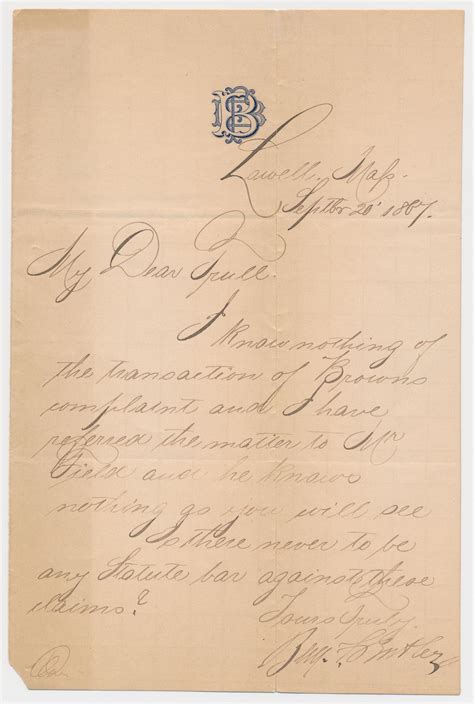 Lowell, Mass.
Septbr 20' 1867.
My Dear Trull.
I know nothing of
the transaction of Browns
complaint and I have
referred the matter to Mr
Field and he knows
nothing as you will see
Is there never to be
any Statute bar against these
claims?
Yours truly.
Benj. F. Butler